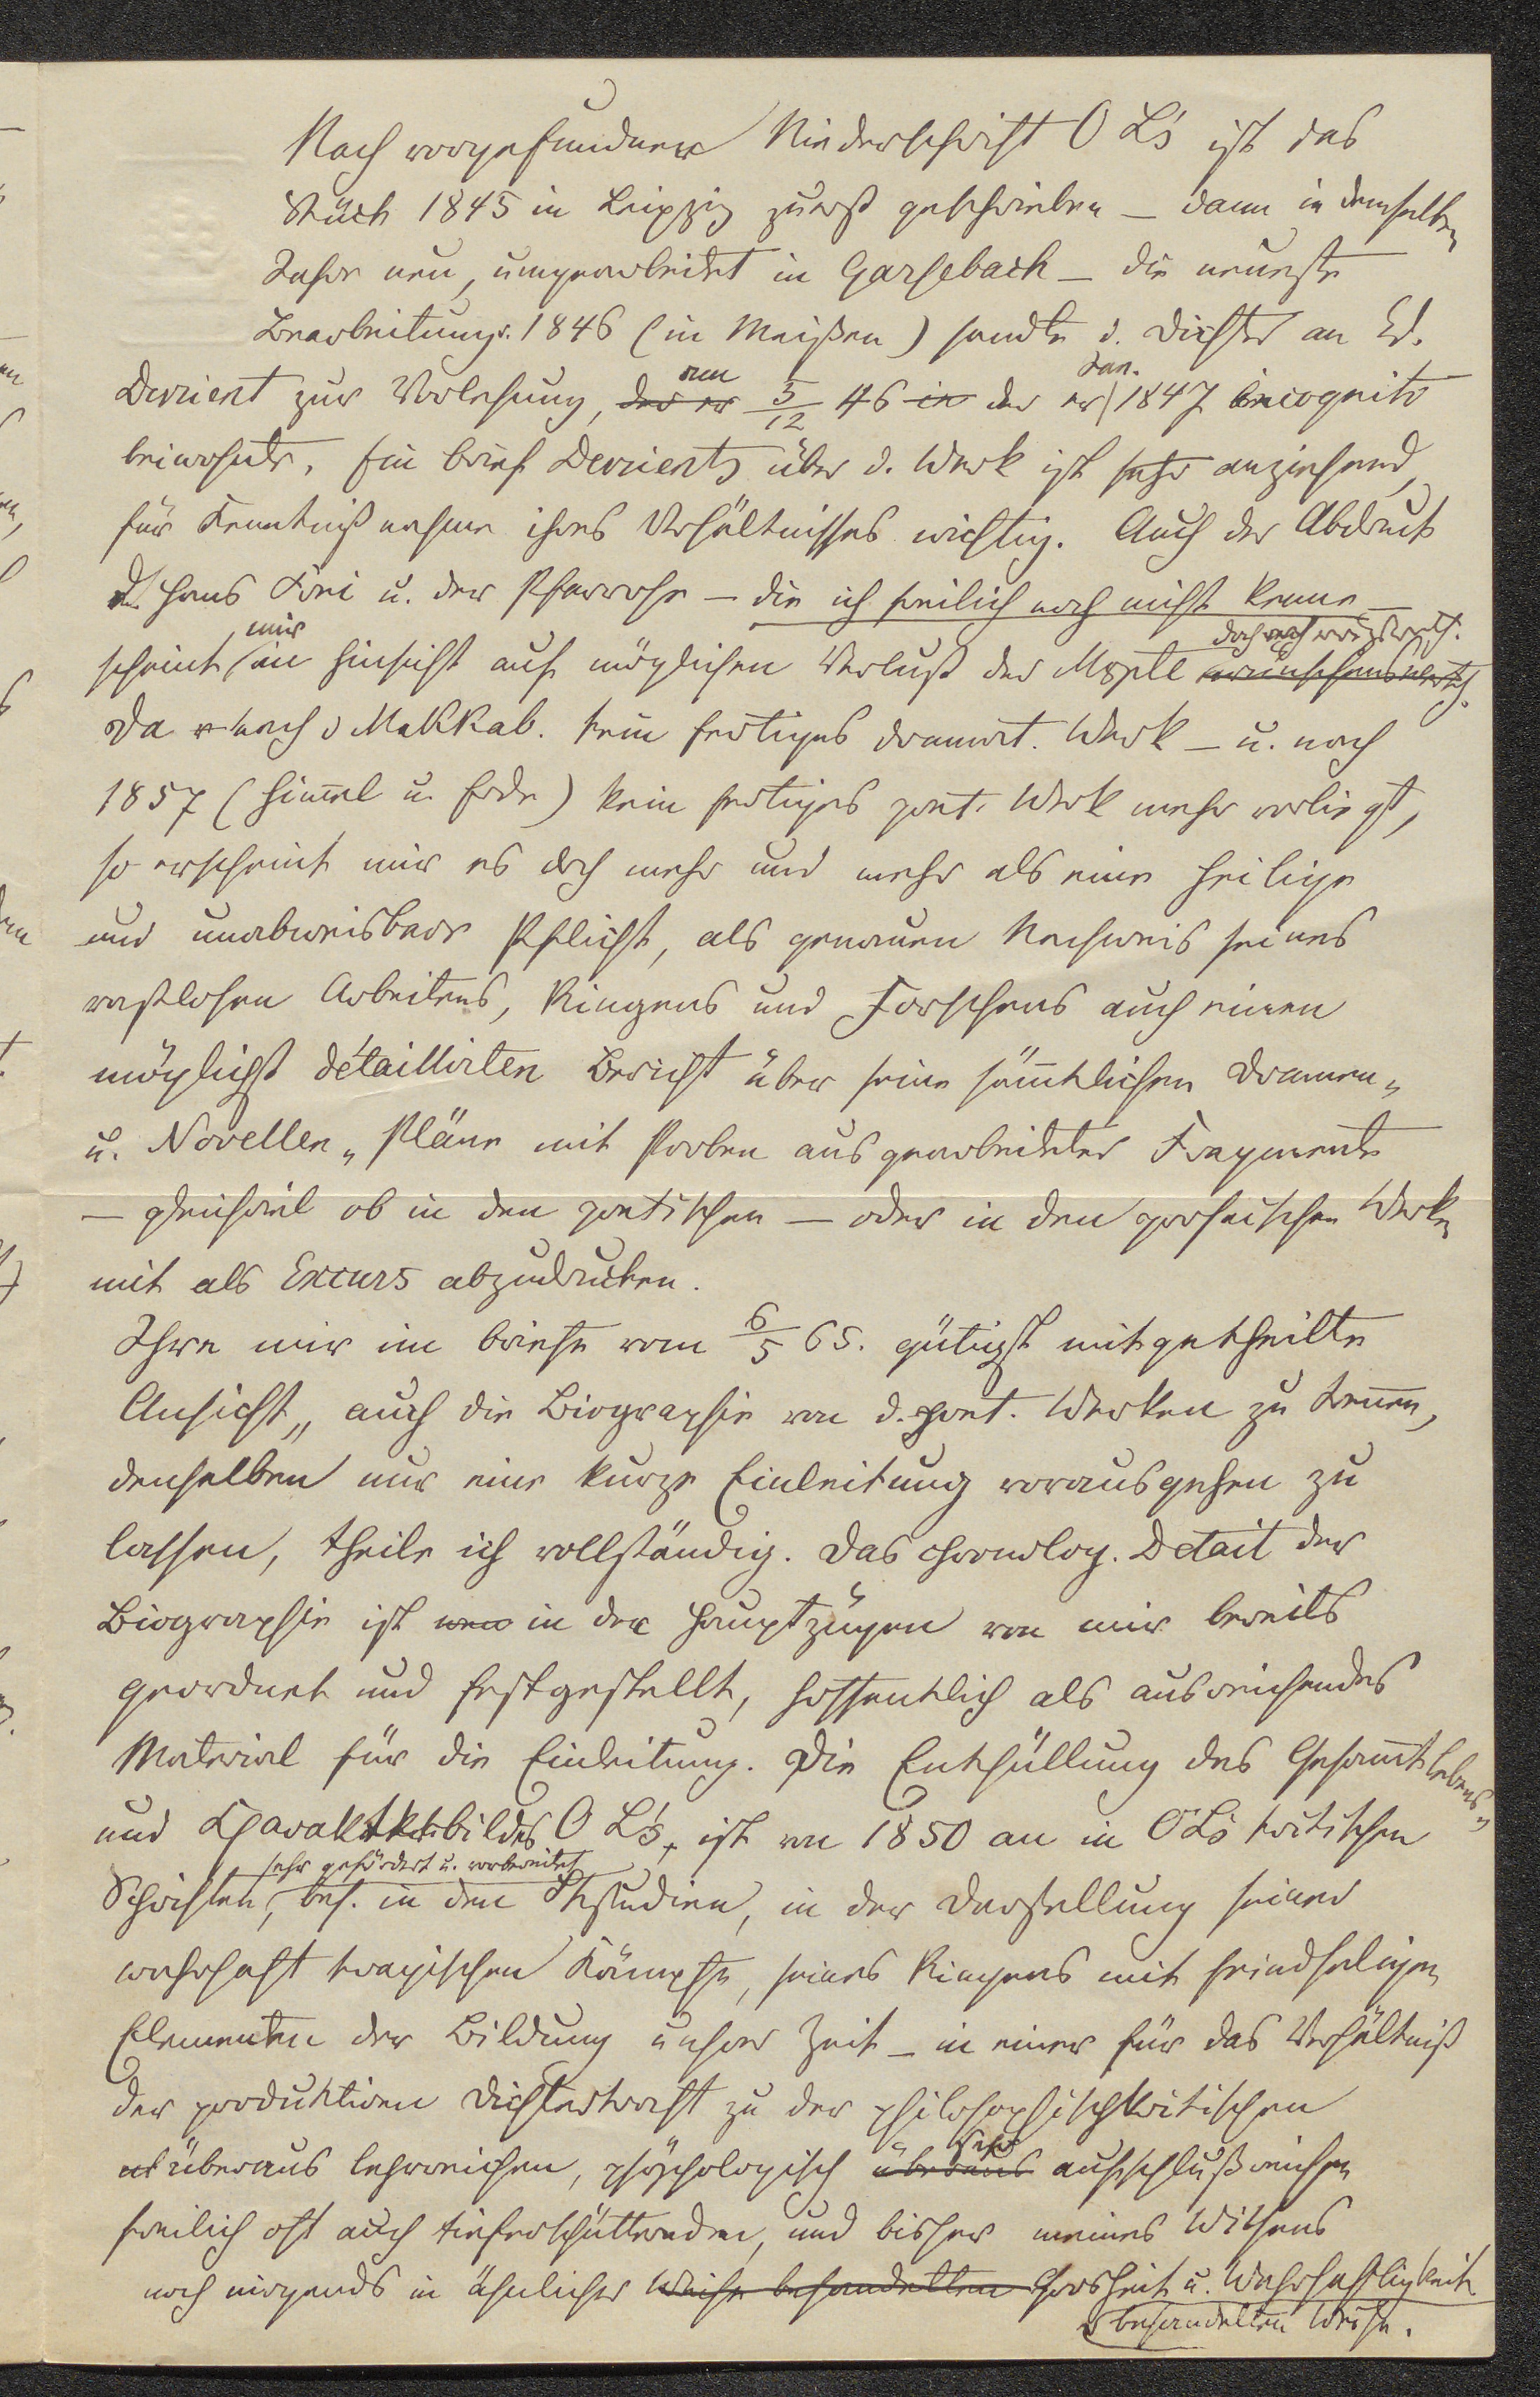 Nach vorgefundner Niederschrift O Ls ist das
Stück 1845 in Leipzig zuerst geschrieben – dann in demselben
Jahre neu, umgearbeitet in Garsebach – die neueste
Bearbeitung v. 1846 (in Meißen) sandte d. Dichter an Ed.
Devrient zur Vorlesung, der er am 5/12 46 in der er Jan. 1847 incognito
beiwohnte. Ein Brief Devrients über d. Werk ist sehr anziehend,
für Kenntnißnahme ihres Verhältnisses wichtig. Auch der Abdruck
d. Hans Frei u. der Pfarrose – die ich freilich noch nicht kenne –
scheint mir in Hinsicht auf möglichen Verlust der Mspte wünschenswerth doch
Da nach d Makkab. kein fertiges dramat. Werk – u. nach
1857 (Himel u. Erde) kein fertiges poet. Werk mehr vorliegt,
so erscheint mir es doch mehr und mehr als eine heilige
und unabweisbare Pflicht, als genauen Nachweis seines
rastlosen Arbeitens, Ringens und Forschens auch einen
möglichst détaillirten Bericht über seine sämtlichen Dramen„
u. Novellen„ Pläne mit Proben ausgearbeiteter Fragmente
– gleichviel ob in den poetischen – oder in den prosaischen Werken
mit als Excurs abzudrucken.
Ihre mir im Briefe vom 6/5 65. gütigst mitgetheilte
Ansicht„ auch die Biographie von d. poet. Werken zu trenen,
denselben nur eine kurze Einleitung vorausgehen zu
lassen, theile ich vollständig. Das chronolog. Detail der
Biographie ist in den Hauptzügen von mir bereits
geordnet und festgestellt, hoffentlich als ausreichendes
Material für die Einleitung. Die Enthüllung des Gesamtlebens„
und Charakterbildes O Ls, ist von 1850 an in O Ls kritischen
Schriften, sehr gefördert u. vorbereitet bes. in den Shstudien, in der Darstellung seiner
wahrhaft tragischen Kämpfe, seines Ringens mit feindseligen
Elementen der Bildung unsrer Zeit – in einer für das Verhältniß
der produktiven Dichterkraft zu der philosophischkritischen
überaus lehrreichen, psychologisch überaus sehr aufschlußreichen
freilich oft auch tieferschütternden, und bisher meines Wissens
noch nirgends in ähnlicher Weise behandelten Großheit u. Wahrhaftigkeit
behandelten Weise.